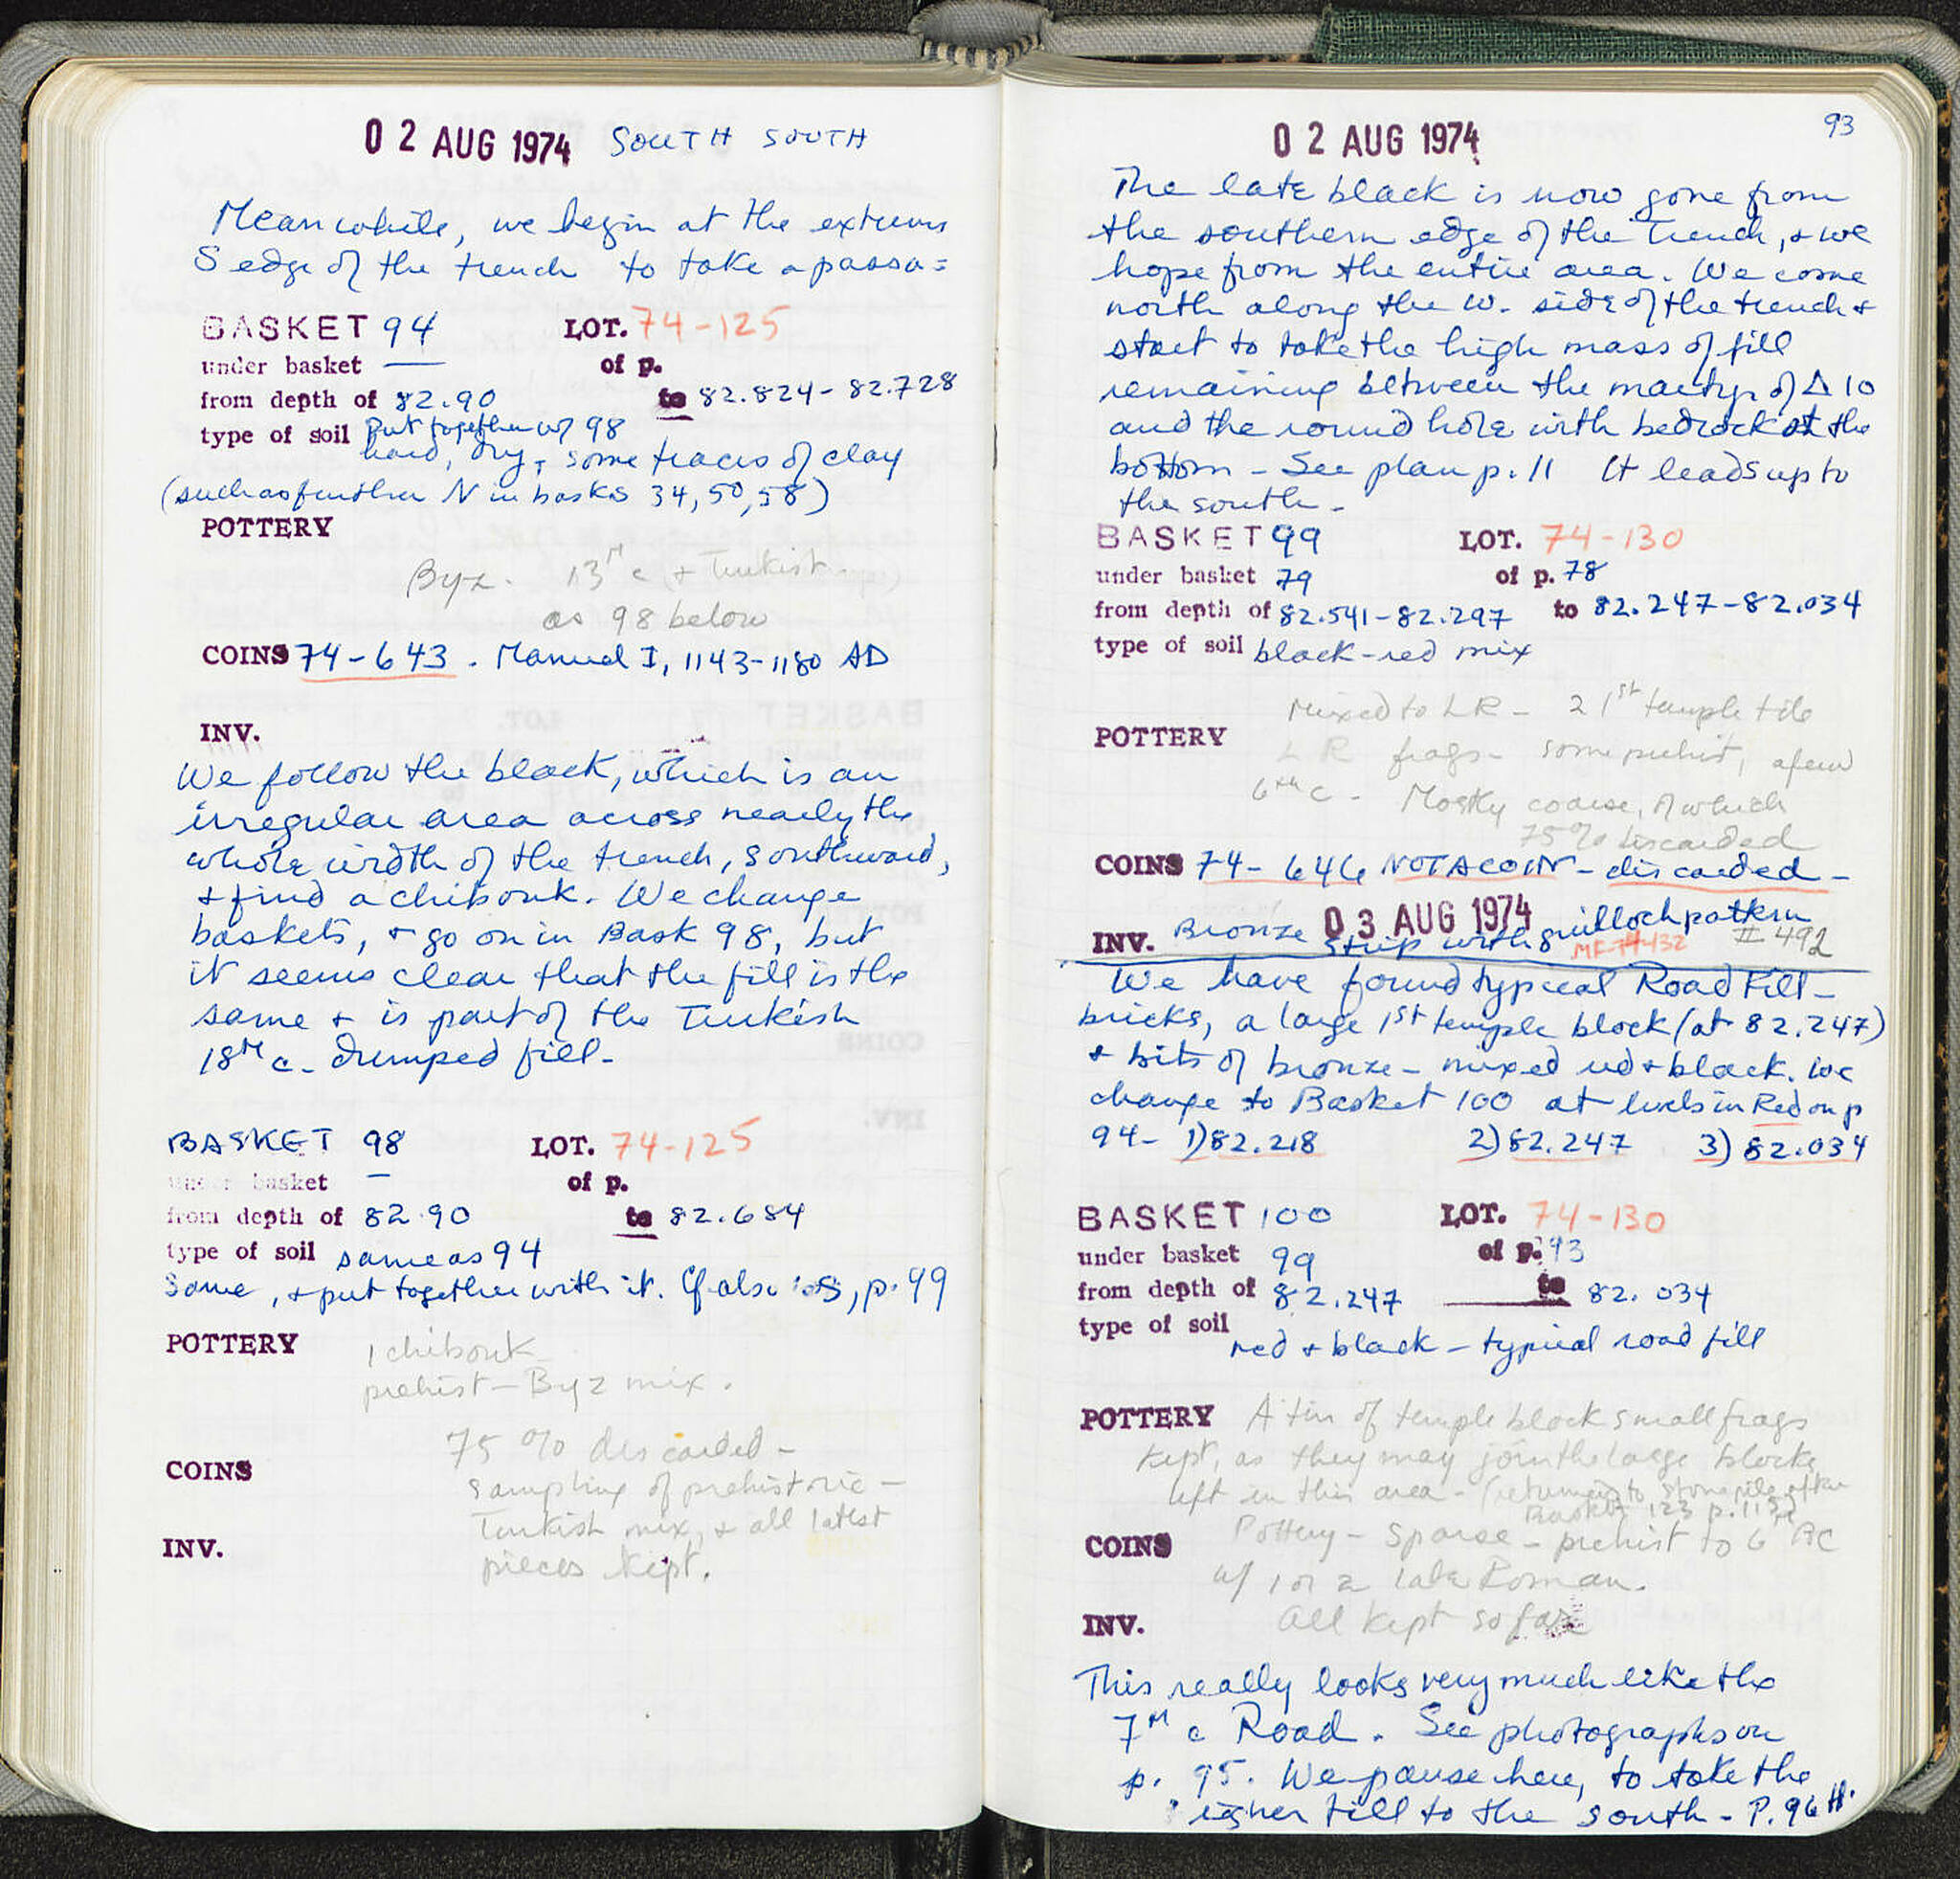 02 AUG 1974 SOUTH SOUTH
Meanwhile, we begin at the extreme
S edge of the trench to take a pass a=
BASKET 94 LOT. 74-125
under basket — of p.
from depth of 82.90 to 82.824-82.728
type of soil Put together w/ 98
hard, dry, some traces of clay
(such as further N in basks 34, 50, 58)
POTTERY
Byz. 13th c + Turkish.
as 98 below
COINS 74-643. Manuel I, 1143-1180 AD
INV.
We follow the black, which is an
irregular area across nearly the
whole width of the trench, southward,
+ find a chibouk. We change
baskets, + go on in Bask 98, but
it seems clear that the fill is the
same + is part of the Turkish
18th c. dumped fill-
BASKET 98 LOT. 74-125
under basket — of p.
from depth of 82.90 to 82.684
type of soil same as 94
Same, + put together with it. Cf also 105, p. 99
POTTERY 1 chibouk
prehist-Byz mix.
75% discarded-
COINS
sampling of prehistoric-
Turkish mix, + all latest
INV.
pieces kept.
93
02 AUG 1974
The late black is now gone from
the southern edge of the trench, + we
hope from the entire area. We come
north along the W. side of the trench +
start to take the high mass of fill
remaining between the martyr of Δ 10
and the round hole with bedrock at the
bottom - See plan p. 11 It leads up to
the south-
BASKET 99 LOT. 74-130
under basket 79 of p. 78
from depth of 82.541-82.297 to 82.247-82.034
type of soil black-red mix
Mixed to LR- 2 1st temple tile
POTTERY LR frags- some prehist, a few
6th c - Mostly coarse, of which
75% discarded
COINS 74-646 NOT A COIN - discarded-
03 AUG 1974
INV. Bronze strip with guilloch pattern
MF-74-432 # 492
We have found typical Road Fill-
bricks, a large 1st temple block (at 82.247)
+ bits of bronze - mixed red + black. We
change to Basket 100 at levels in Red on p
94- 1) 82.218 2) 82.247 3) 82.034
BASKET 100 LOT. 74-130
under basket 99 of p. 93
from depth of 82.247 to 82.034
type of soil
red + black - typical road fill
POTTERY A tin of temple block small frags
kept, as they may join the large blocks
left in this area - (returned to stone pile after
Basket 123 p. 115)
COINS Pottery - sparse - prehist to 6th BC
w/ 1 or 2 late Roman.
INV. all kept so far
This really looks very much like the
7th c Road. See photographs on
p. 95. We pause here, to take the
higher fill to the south - P. 96 ff.